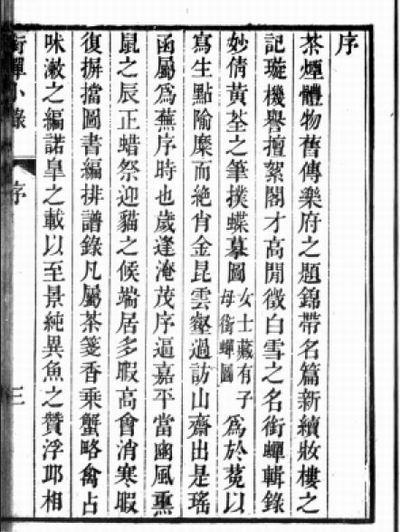 序
茶煙體物舊傳樂府之題錦帶名篇新續妝樓之
記璇機譽擅絮閣才高閒徵白雪之名銜蟬輯錄
妙倩黃荃之筆撲蝶摹圖女士藏有子母銜蟬圖爲於菟以
寫生點隃麋而絶肖金昆雲壑過訪山齋出是瑤
函屬爲蕪序時也歲逢淹茂序逼嘉平當豳風熏
鼠之辰正蜡祭迎貓之候端居多暇高會消寒暇
復摒擋圖書編排譜錄凡屬茶箋香乘蟹略禽占
咪漱之編諾臯之載以至景純異魚之贊浮邱相
銜蟬小錄 序 三